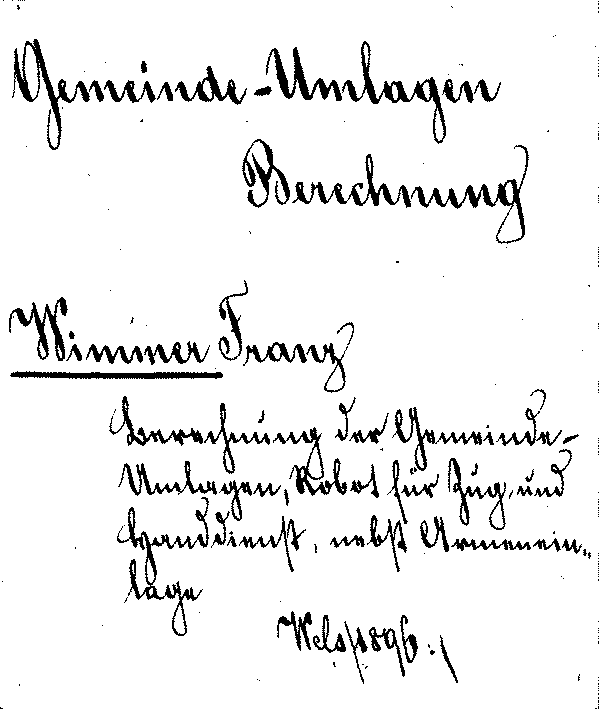 Gemeinde-Umlagen
Berechnung
Wimmer Franz
Berechnung der Gemeinde-
Umlagen, Robot für Zug- und
Handdienst, nebst Armenein-
lage
Wels, 1896.